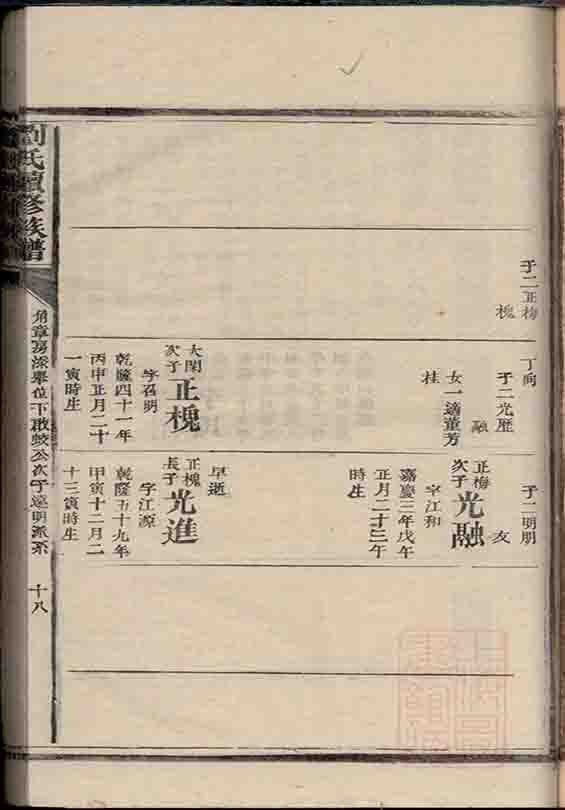 子二正梅
槐
丁向
子二光歷
融
女一適董芳
桂
大閑
次子
正槐
字召明
乾隆四十一年
丙申正月二十
一寅時生
子二明朋
友
正梅
次子
光融
字江和
嘉慶三年戊午
正月二十三午
時生
早逝
正槐
長子
光進
字江源
乾隆五十九年
甲寅十二月二
十三寅時生
劉氏續修族譜
十八